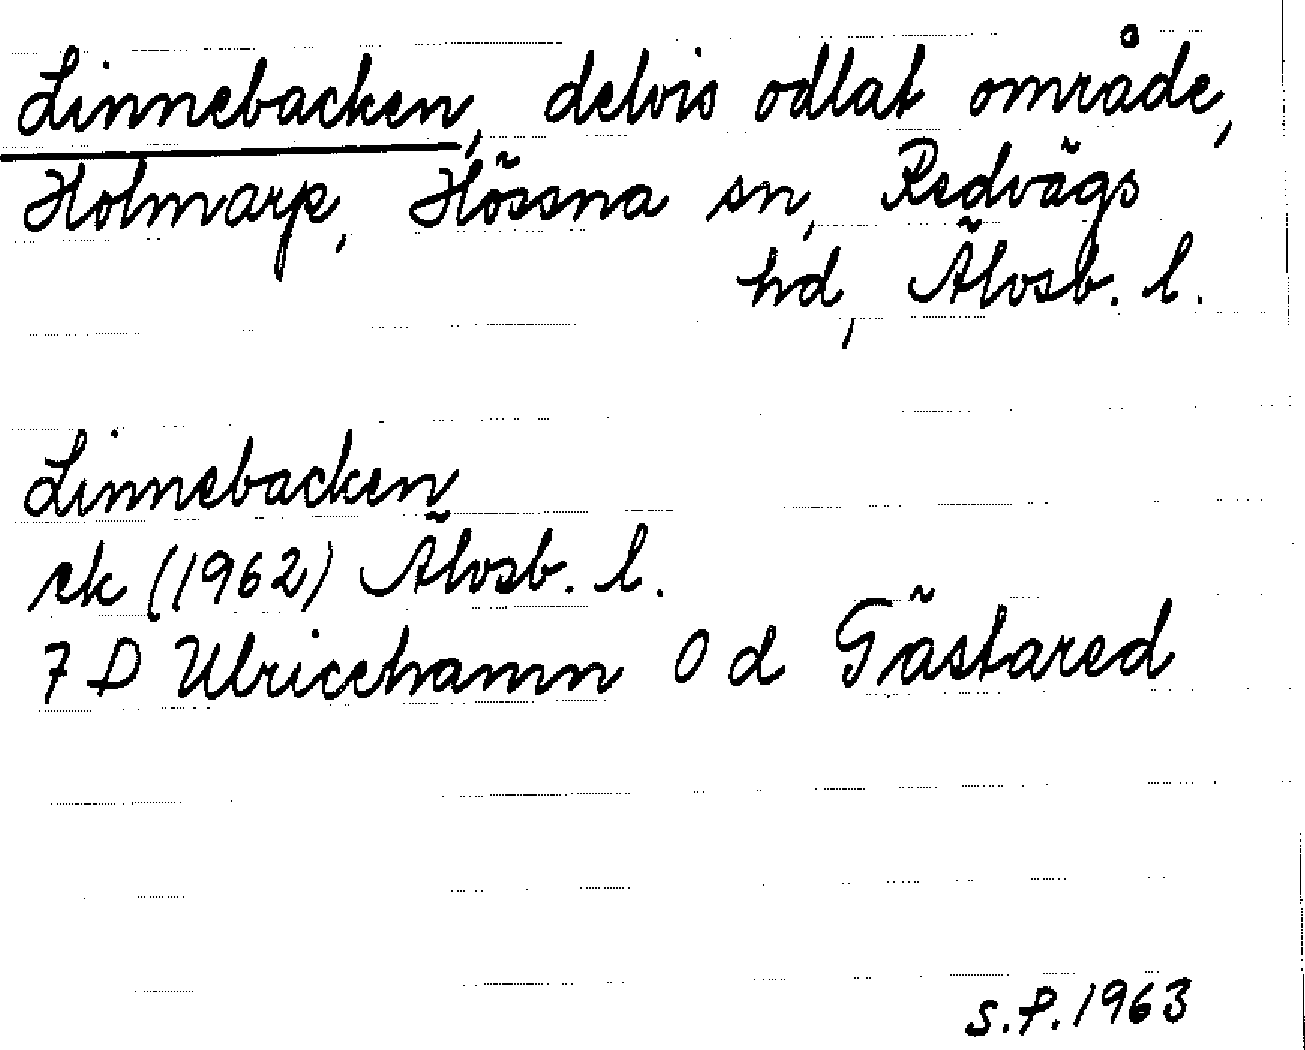 Linnebacken, delvis odlat område,
Holmarp, Hössna sn, Redvägs
hd, Älvsb. l.
Linnebacken
ek (1962) Älvsb. l.
7 D Ulricehamn 0 d Tästared
S.P. 1963